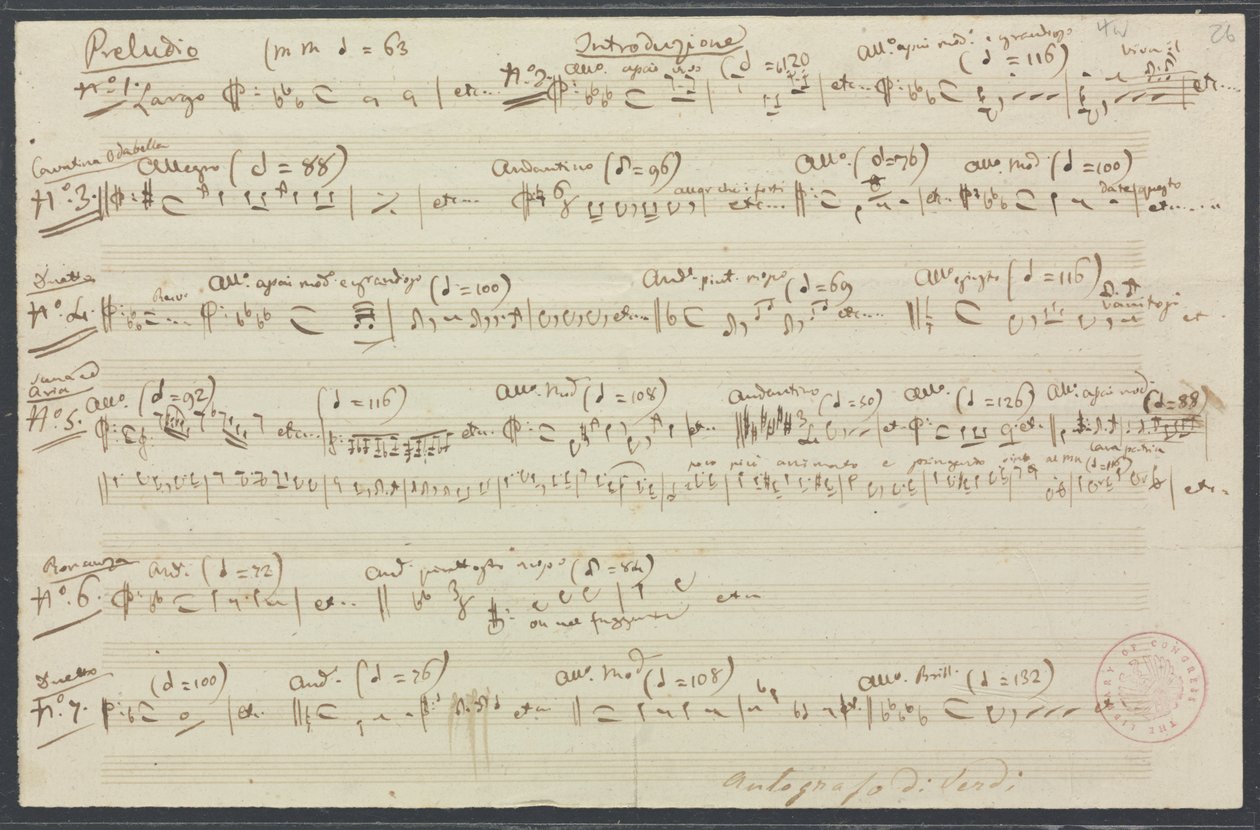 Preludio (MM d = 63 Introduzione
No. 1. Largo etc... No. 2. All.o assai vivo (d = 120 etc... All.o assai mod.o e grandioso (d = 116) Viva il etc...
Cavatina Odabella Allegro (d = 88) Andantino (♪ = 96) All.o (d = 76) All.o Mod.o (d = 100)
No. 3. etc... allegrar che i forti etc... etc... Da te questo etc.....
Duetto All.o assai mod.o e grandioso (d = 100) And.e piut. mosso (d = 69 All.o giusto (d = 116)
No. 4. etc... etc... vanitosi etc.
Scena ed Aria All.o (d = 92) (d = 116) All.o Mod.o (d = 108) Andantino (d = 50) All.o (d = 126) All.o assai mod.o (d = 88)
No. 5. etc... etc... etc... etc. etc. cara patria
poco più animato e (d = 116) etc..
Romanza And.e (d = 72) And.e piuttosto mosso (♪ = 84)
No. 6. etc... oh nel fuggente etc...
Duetto (d = 100) And.e (d = 76) All.o Mod.o (d = 108) All.o Brill. (d = 132)
No. 7. etc. etc... etc. etc.
Autografo di Verdi
26
LIBRARY OF CONGRESS